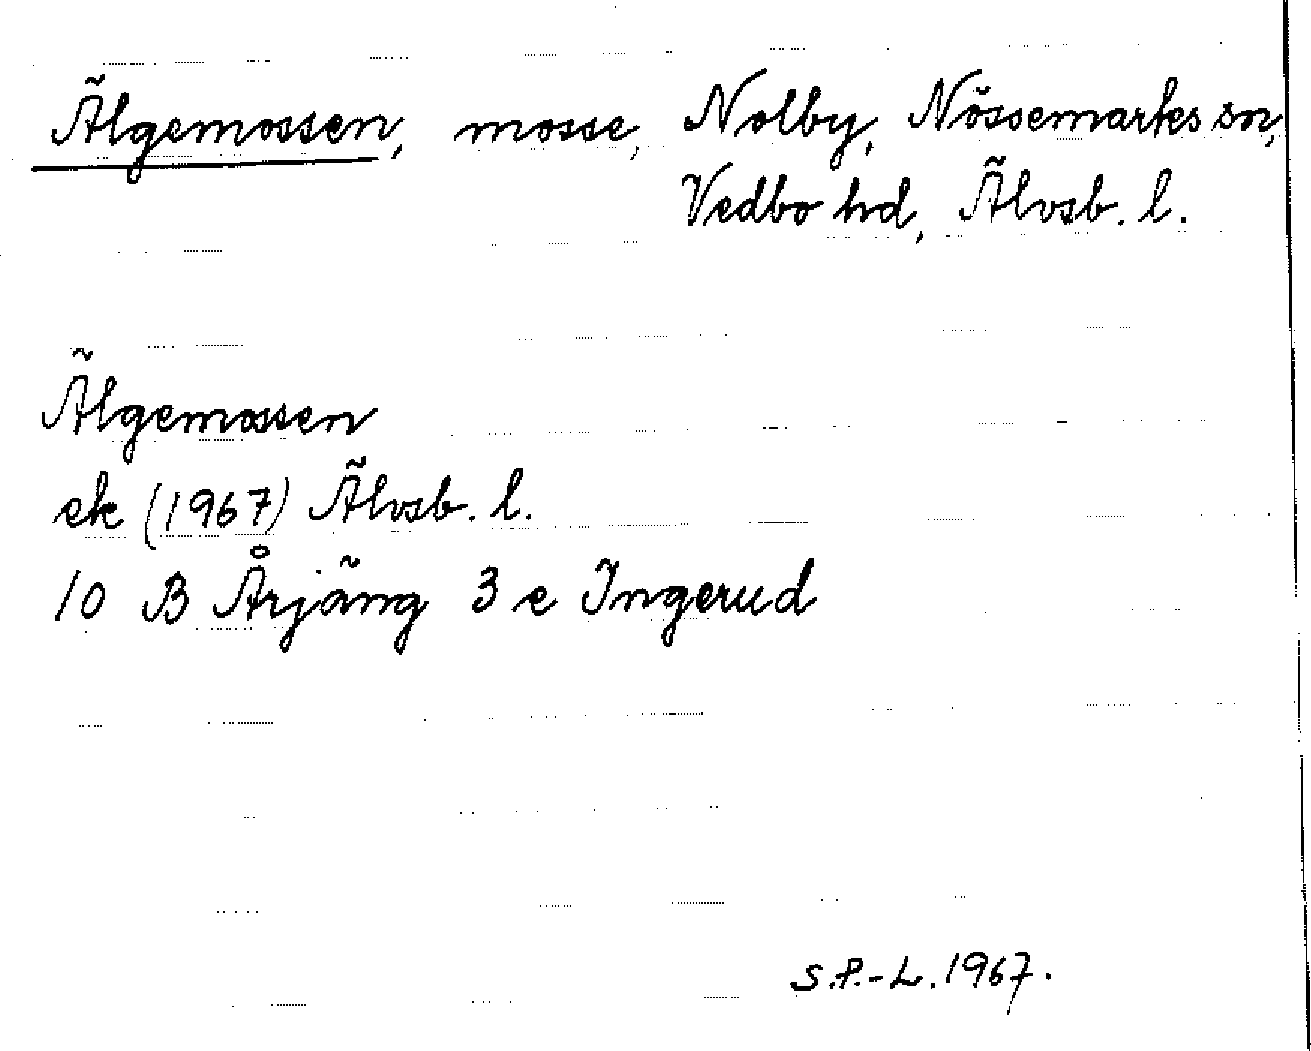 Älgemossen, mosse, Nolby, Nössemarks sn,
Vedbo hd, Älvsb. l.
Älgemossen
ek (1967) Älvsb. l.
10 B Årjäng 3 e Ingerud
S.P.-L. 1967.